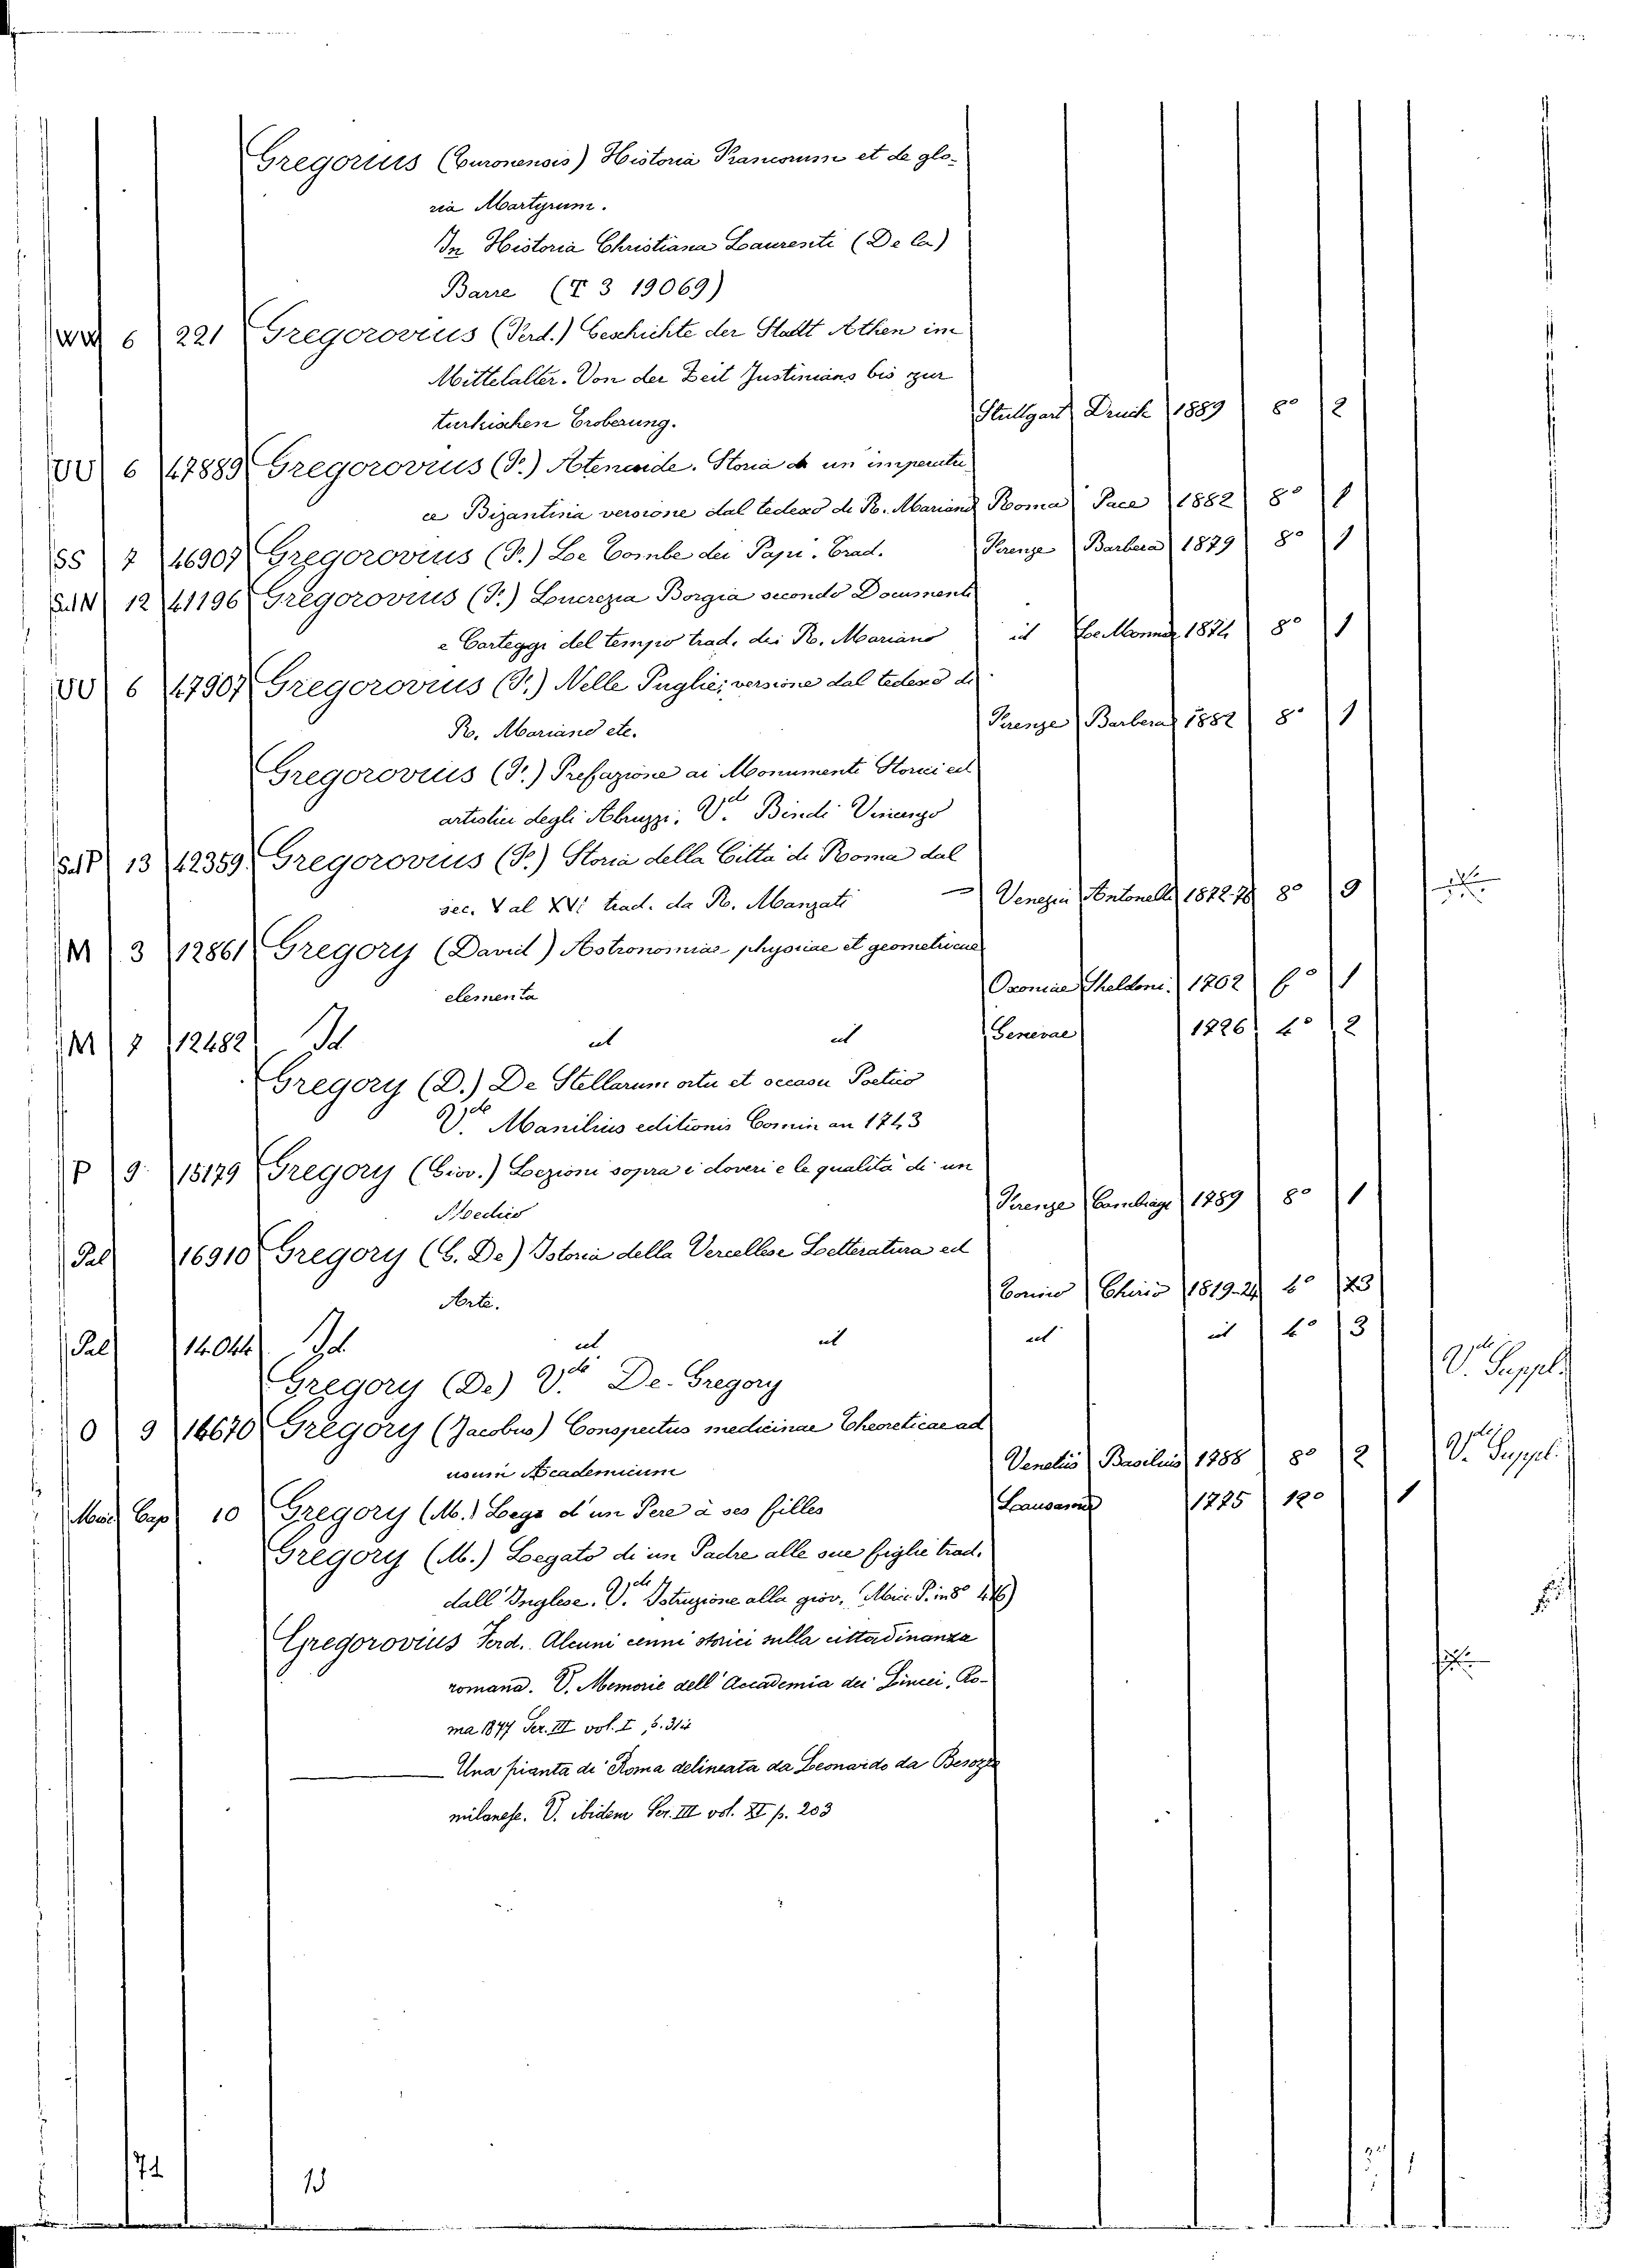 Gregorius (Turonensis) Historia Francorum et de glo-
ria Martyrum.
In Historia Christiana Laurenti (De la)
Barre (T 3 19069)
6 221 Gregorovius (Ferd.) Geschichte der Stadt Athen im
Mittelalter. Von der Zeit Justinians bis zur
turkischen Eroberung. Stuttgart Druck 1889 8° 2
VV 6 47889 Gregorovius (F.) Atenaide. Storia di un imperatri-
ce Bizantina versione dal tedesco di R. Mariano Roma Pace 1882 8° 1
SS 7 46907 Gregorovius (F.) Le Tombe dei Papi. Trad. Firenze Barbera 1879 8° 1
12 41196 Gregorovius (F.) Lucrezia Borgia secondo Documenti
e Carteggi del tempo trad. dei R. Mariano id Le Monnier 1874 8° 1
VV 6 47907 Gregorovius (F.) Nelle Puglie; versione dal tedesco di
R. Mariano etc. Firenze Barbera 1882 8° 1
Gregorovius (F.) Prefazione ai Monumenti Storici ed
artistici degli Abruzzi. V. Bindi Vincenzo
13 42359 Gregorovius (F.) Storia della Città di Roma dal
sec. V al XVI trad. da R. Manzati — Venezia Antonelli 1872-76 8° 9
M 3 12861 Gregory (David) Astronomiae physicae et geometricae
elementa Oxoniae Sheldoni. 1702 f° 1
M 7 12482 Id id id Genevae 1726 4° 2
Gregory (D.) De Stellarum ortu et occasu Poetico
V. Manilius editionis Comin an 1743
P 9 15179 Gregory (Giov.) Lezioni sopra i doveri e le qualità di un
Medico Firenze Cambiagi 1789 8° 1
Pal 16910 Gregory (G. De) Istoria della Vercellese Letteratura ed
Arte. Torino Chirio 1819-24 4° 3
Pal 14044 Id. id id id id 4° 3
Gregory (De) V. De-Gregory V. Suppl.
O 9 14670 Gregory (Jacobus) Conspectus medicinae theoreticae ad
usum Academicum Venetiis Basilius 1788 8° 2 V. Suppl.
Misc. Cap 10 Gregory (M.) Legs d'un Pere à ses filles Lausanne 1775 12° 1
Gregory (M.) Legato di un Padre alle sue figlie trad.
dall'Inglese. V. Istruzione alla giov. Misc. P. in 8° 446)
Gregorovius Ferd. Alcuni cenni storici sulla cittadinanza
romana. V. Memorie dell'Accademia dei Lincei, Ro-
ma 1877 Ser. III vol. I p. 314
— Una pianta di Roma delineata da Leonardo da Besozzo
milanese. V. ibidem Ser. III vol. XI p. 203